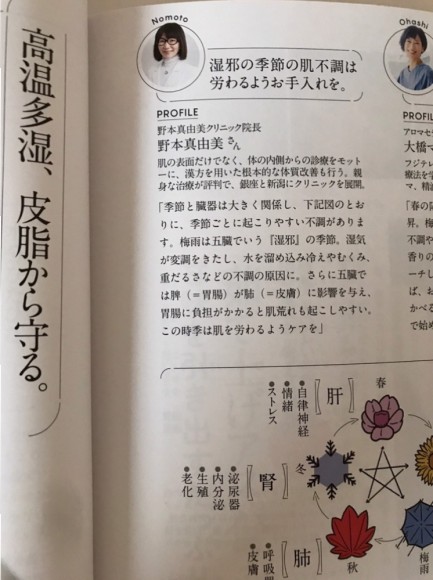 高温多湿、皮脂から守る。
Nomoto
湿邪の季節の肌不調は
労わるようお手入れを。
PROFILE
野本真由美クリニック院長
野本真由美さん
肌の表面だけでなく、体の内側からの診療をモット
ーに、漢方を用いた根本的な体質改善も行う。親
身な治療が評判で、銀座と新潟にクリニックを展開。
「季節と臓器は大きく関係し、下記図のとお
りに、季節ごとに起こりやすい不調がありま
す。梅雨は五臓でいう『湿邪』の季節。湿気
が変調をきたし、水を溜め込み冷えやむくみ、
重だるさなどの不調の原因に。さらに五臓で
は脾（＝胃腸）が肺（＝皮膚）に影響を与え、
胃腸に負担がかかると肌荒れも起こしやすい。
この時季は肌を労わるようケアを」
Ohashi
PROFI
アロマセ
大橋マ
フジテレ
療法を学
マ、精油
「春の陽
昇。梅
不調や
香りの
ーチし
ば、お
かべる
で始め
春
［肝］
●自律神経
●情緒
●ストレス
冬
［腎］
●泌尿器
●内分泌
●生殖
●老化
梅雨
秋
［肺］
●呼吸器
●皮膚